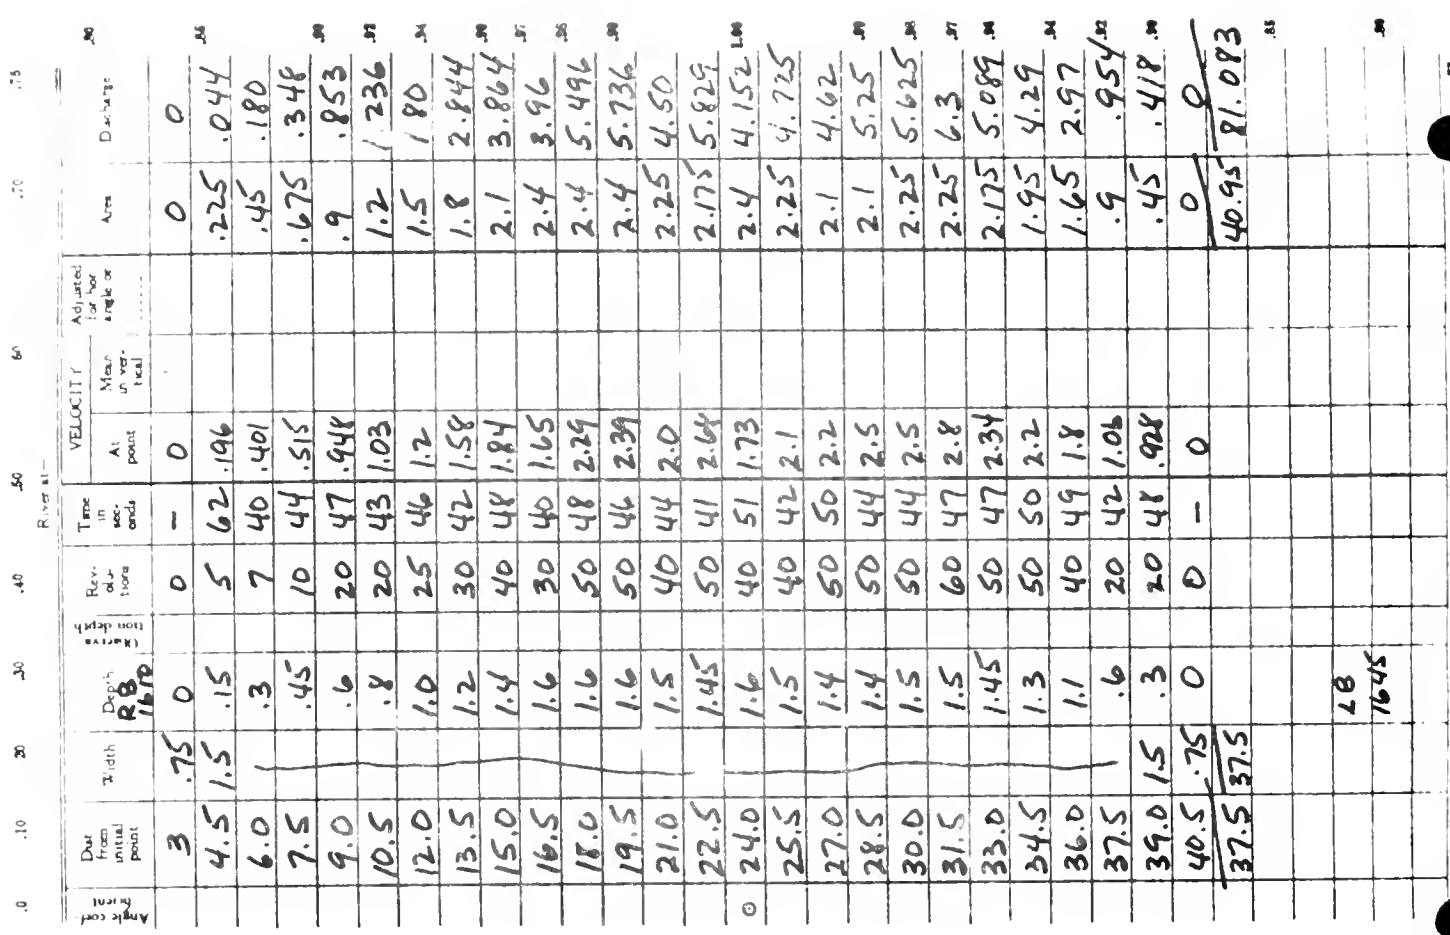 .0 .10 .20 .30 .40 .50 .60 .70 .75
River at—
Angle coefficient Dist. from initial point Width Depth Observation depth Revolutions Time in seconds VELOCITY At point Mean in vertical Adjusted for hor. angle or ...... Area Discharge
RB 1610
.80
3 .75 0 0 — 0 0 0
4.5 1.5 .15 5 62 .196 .225 .044 .85
6.0 .3 7 40 .401 .45 .180
7.5 .45 10 44 .515 .675 .348
9.0 .6 20 47 .948 .9 .853 .90
10.5 .8 20 43 1.03 1.2 1.236 .92
12.0 1.0 25 46 1.2 1.5 1.80 .94
13.5 1.2 30 42 1.58 1.8 2.844
15.0 1.4 40 48 1.84 2.1 3.864 .96
16.5 1.6 30 40 1.65 2.4 3.96 .97
18.0 1.6 50 48 2.29 2.4 5.496 .98
19.5 1.6 50 46 2.39 2.4 5.736 .99
21.0 1.5 40 44 2.0 2.25 4.50
22.5 1.45 50 41 2.68 2.175 5.829
24.0 1.6 40 51 1.73 2.4 4.152 1.00
25.5 1.5 40 42 2.1 2.25 4.725
27.0 1.4 50 50 2.2 2.1 4.62
28.5 1.4 50 44 2.5 2.1 5.25 .99
30.0 1.5 50 44 2.5 2.25 5.625 .98
31.5 1.5 60 47 2.8 2.25 6.3 .97
33.0 1.45 50 47 2.34 2.175 5.089 .96
34.5 1.3 50 50 2.2 1.95 4.29
36.0 1.1 40 49 1.8 1.65 2.97 .94
37.5 .6 20 42 1.06 .9 .954 .92
39.0 1.5 .3 20 48 .928 .45 .418 .90
40.5 .75 0 0 — 0 0 0
37.5 37.5 40.95 81.083
.85
LB
1645 .80